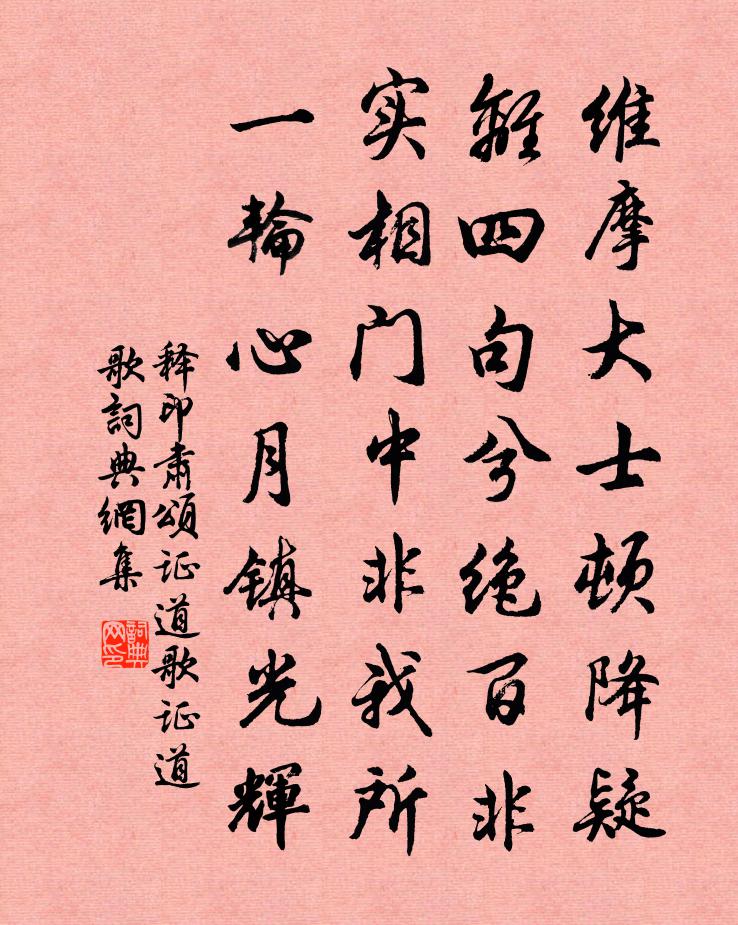 维摩大士顿降疑
離四句兮绝百非
实相门中非我所
一輪心月镇光輝
释印肃頌证道歌证道
歌詞典網集
詞典网印